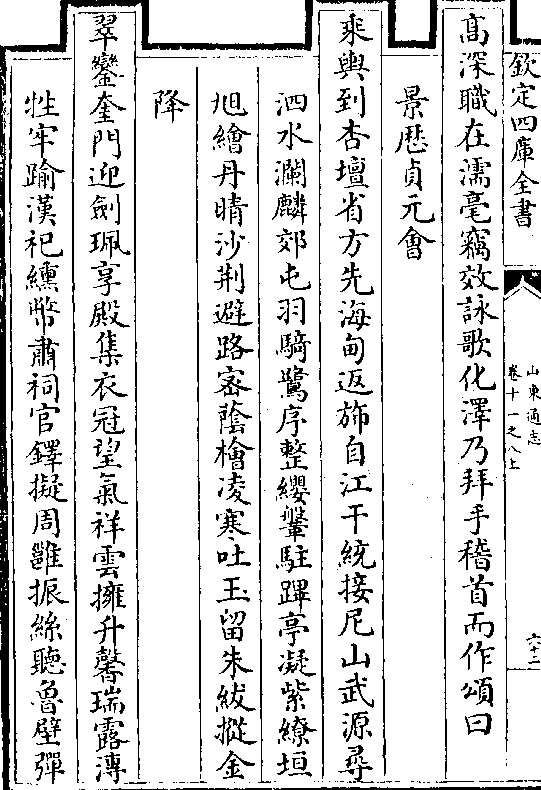 欽定四庫全書
山東通志
卷十一之八上
六十二
高深職在濡毫竊效詠歌化澤乃拜手稽首而作頌曰
景歴貞元會
乘輿到杏壇省方先海甸返斾自江干統接尼山武源尋
泗水瀾麟郊屯羽騎鷺序整纓鞶駐蹕亭凝紫繚垣
旭繪丹晴沙荆避路宻蔭檜凌寒吐玉留朱紱摐金
降
翠鑾奎門迎劍珮享殿集衣冠望氣祥雲擁升馨瑞露漙
牲牢踰漢祀纁幣肅祠官鐸擬周雝振絲聽魯壁彈